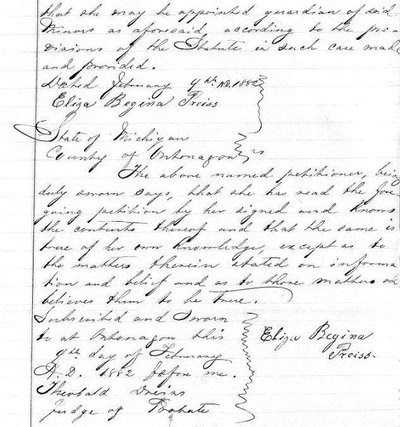 that she may be appointed guardian of said
Minors as aforesaid, according to the pro-
visions of the Statute in such case made
and provided.
Dated February 9th A.D. 1882
Eliza Begina Freiss
State of Michigan
County of Ontonagon } ss
The above named petitioner, being
duly sworn says, that she has read the fore
going petition by her signed and knows
the contents thereof and that the same is
true of her own knowledge, except as to
the matters therein stated on informa
tion and belief and as to those matters she
believes them to be true.
Subscribed and Sworn
to at Ontonagon this
9th day of February
A.D. 1882 before me.
Theobald
Judge of Probate
Eliza Begina
Freiss.